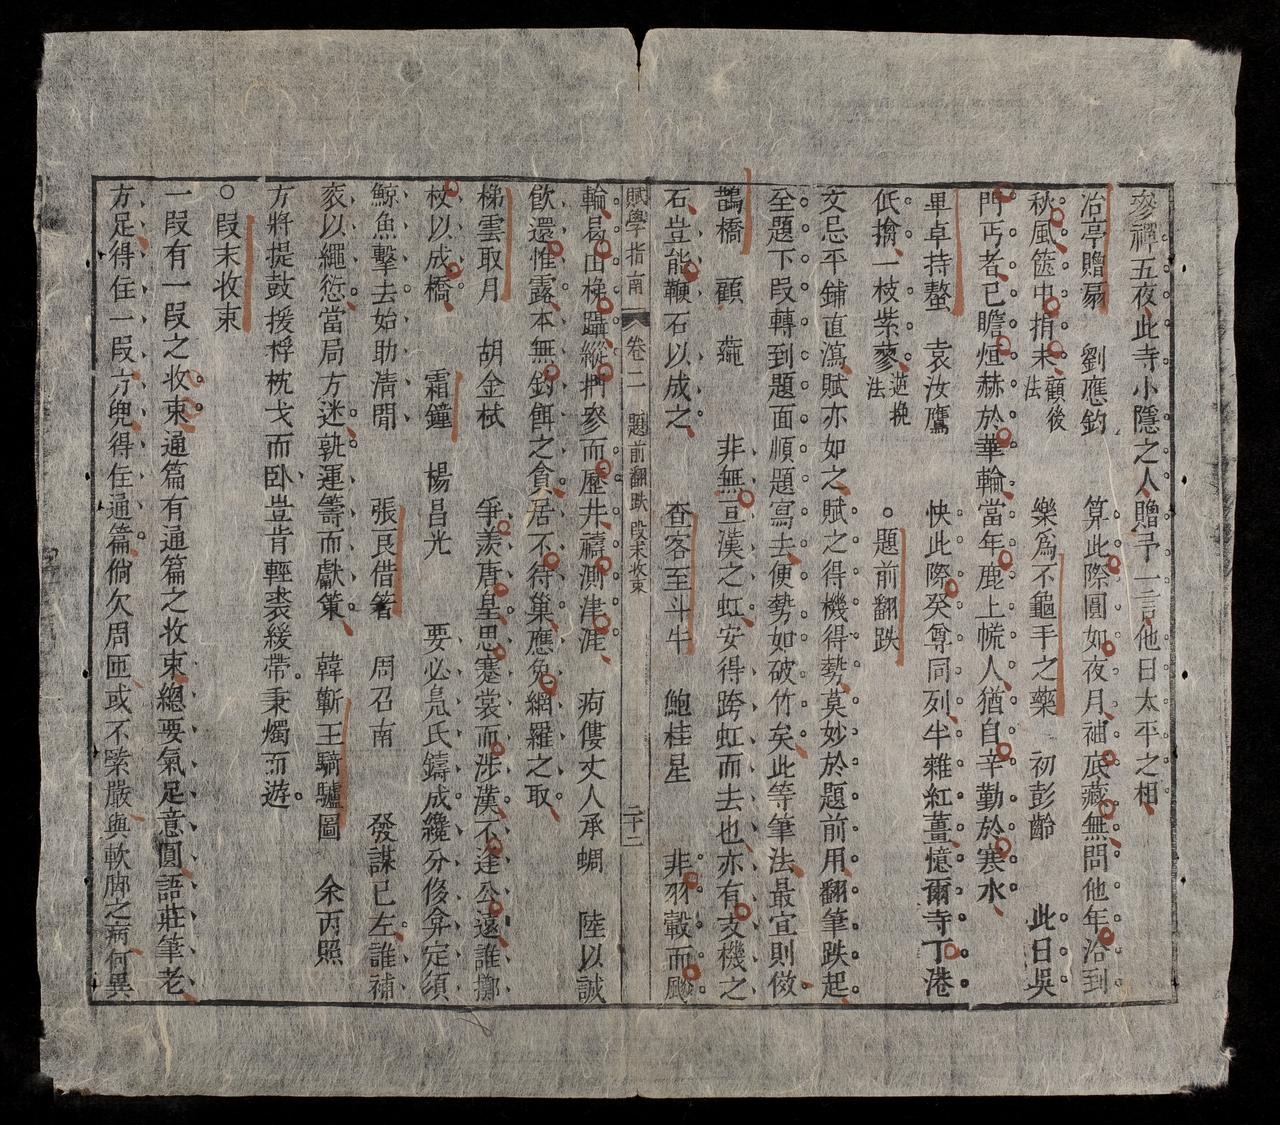 參禪五夜此寺小隱之人贈予一言他日太平之相
冶亭贈扇　劉應鈞　算此際圓如夜月袖底藏無問他年洽到
秋風篋中捐未顧後法　樂爲不龜手之藥　初彭齡　此日吳
門丐者已瞻烜赫於華輪當年鹿上慌人猶自辛勤於寒水
畢卓持螯　袁汝鷹　快此際癸尊同列半雜紅薑憶爾寺丁港
低擒一枝紫蓼逆挽法　○題前翻跌
文忌平鋪直瀉賦亦如之賦之得機得勢莫妙於題前用翻筆跌起
至題下段轉到題面順題寫去便勢如破竹矣此等筆法最宜則傚
鵲橋　顧　蒓　非無亘漢之虹安得跨虹而去也亦有支機之
石豈能鞭石以成之　查客至斗牛　鮑桂星　非羽轂而飈
賦學指南　卷二　題前翻跌　段末收束　二十二
輪易由梯躡縱捫參而歷井禱測津涯　痀僂丈人承蜩　陸以誠
飲還惟露本無釣餌之貪居不待巢應免網羅之取
梯雲取月　胡金栻　爭羨唐皇思蹇裳而涉漢不逢公遠誰擲
杖以成橋　霜鐘　楊昌光　要必鳧氏鑄成纔分侈弇定須
鯨魚擊去始助淸閒　張良借箸　周召南　發謀已左誰補
袞以繩愆當局方迷孰運籌而獻策　韓蘄王騎驢圖　余丙照
方將提鼓援桴枕戈而臥豈肯輕裘緩帶秉燭而遊
○段末收束
一段有一段之收束通篇有通篇之收束總要氣足意圓語莊筆老
方足得住一段方兜得住通篇倘欠周匝或不緊嚴與軟脚之病何異